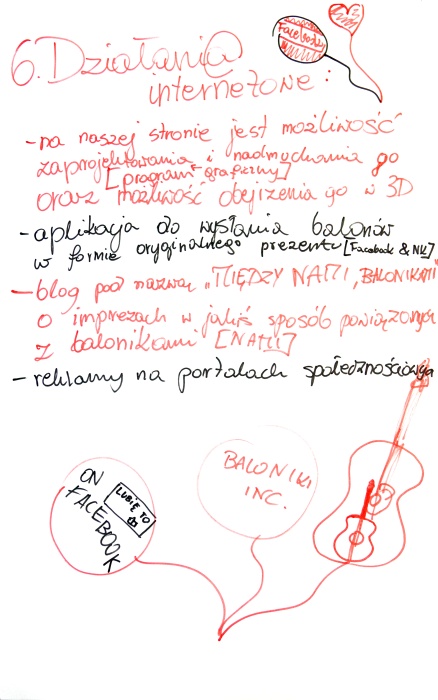 6. Działani@
internetowe:
FaceBook
- na naszej stronie jest możliwość
zaprojektowania i nadmuchania go
[program graficzny]
oraz możliwość obejrzenia go w 3D
- aplikacja do wysłania balonów
w formie oryginalnego prezentu [Facebook & NK]
- blog pod nazwą "MIĘDZY NAMI, BALONIKAMI"
o imprezach w jakiś sposób powiązanych
z balonikami [NAMI]
- reklamy na portalach
ON
FACEBOOK
LUBIĘ TO
BALONIKI
INC.